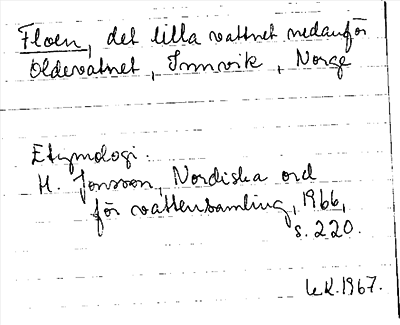 Floen, det lilla vattnet nedanför
Oldevatnet, Innvik, Norge
Etymologi:
H. Jonsson, Nordiska ord
för vattensamling, 1966,
s. 220.
LK. 1967.